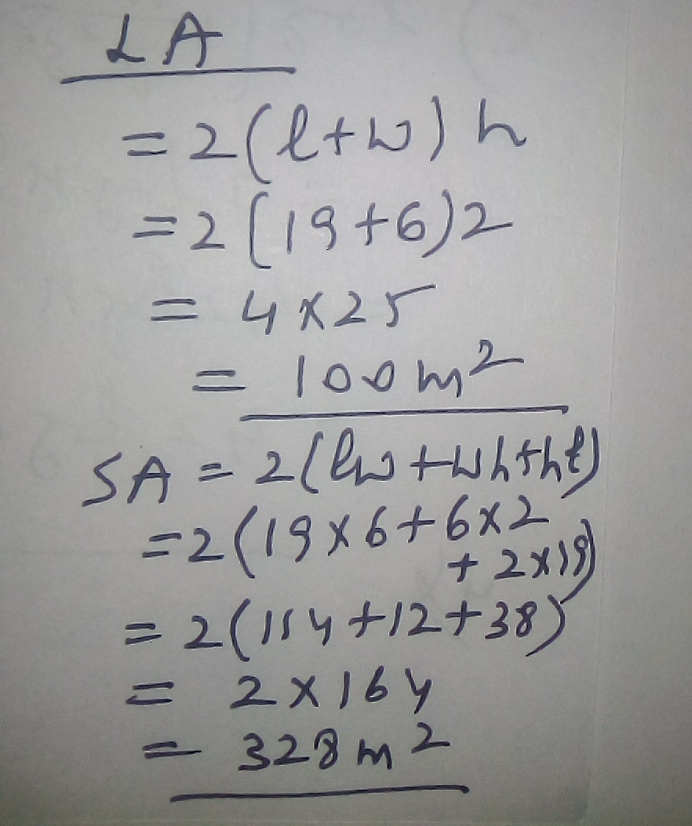 LA
= 2(l+w) h
= 2(19+6)2
= 4 x 25
= 100 m²
SA = 2(lw + wh + hl)
= 2(19 x 6 + 6 x 2
+ 2 x 19)
= 2(114 + 12 + 38)
= 2 x 164
= 328 m²